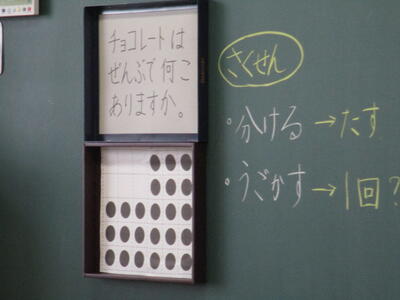 チョコレートは
ぜんぶで何こ
ありますか。
さくせん
・分ける→たす
・うごかす→1回?